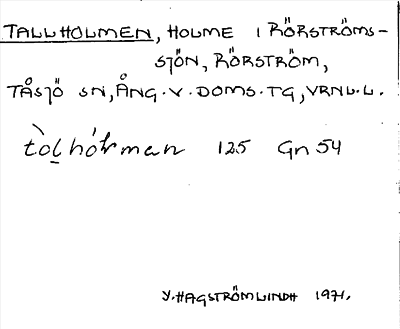 TALLHOLMEN, HOLME I RÖRSTRÖMS-
SJÖN, RÖRSTRÖM,
TÅSJÖ SN, ÅNG. V. DOMS. TG, VRNL. L.
125 Gn 54
Y. HAGSTRÖM LINDH 1971.